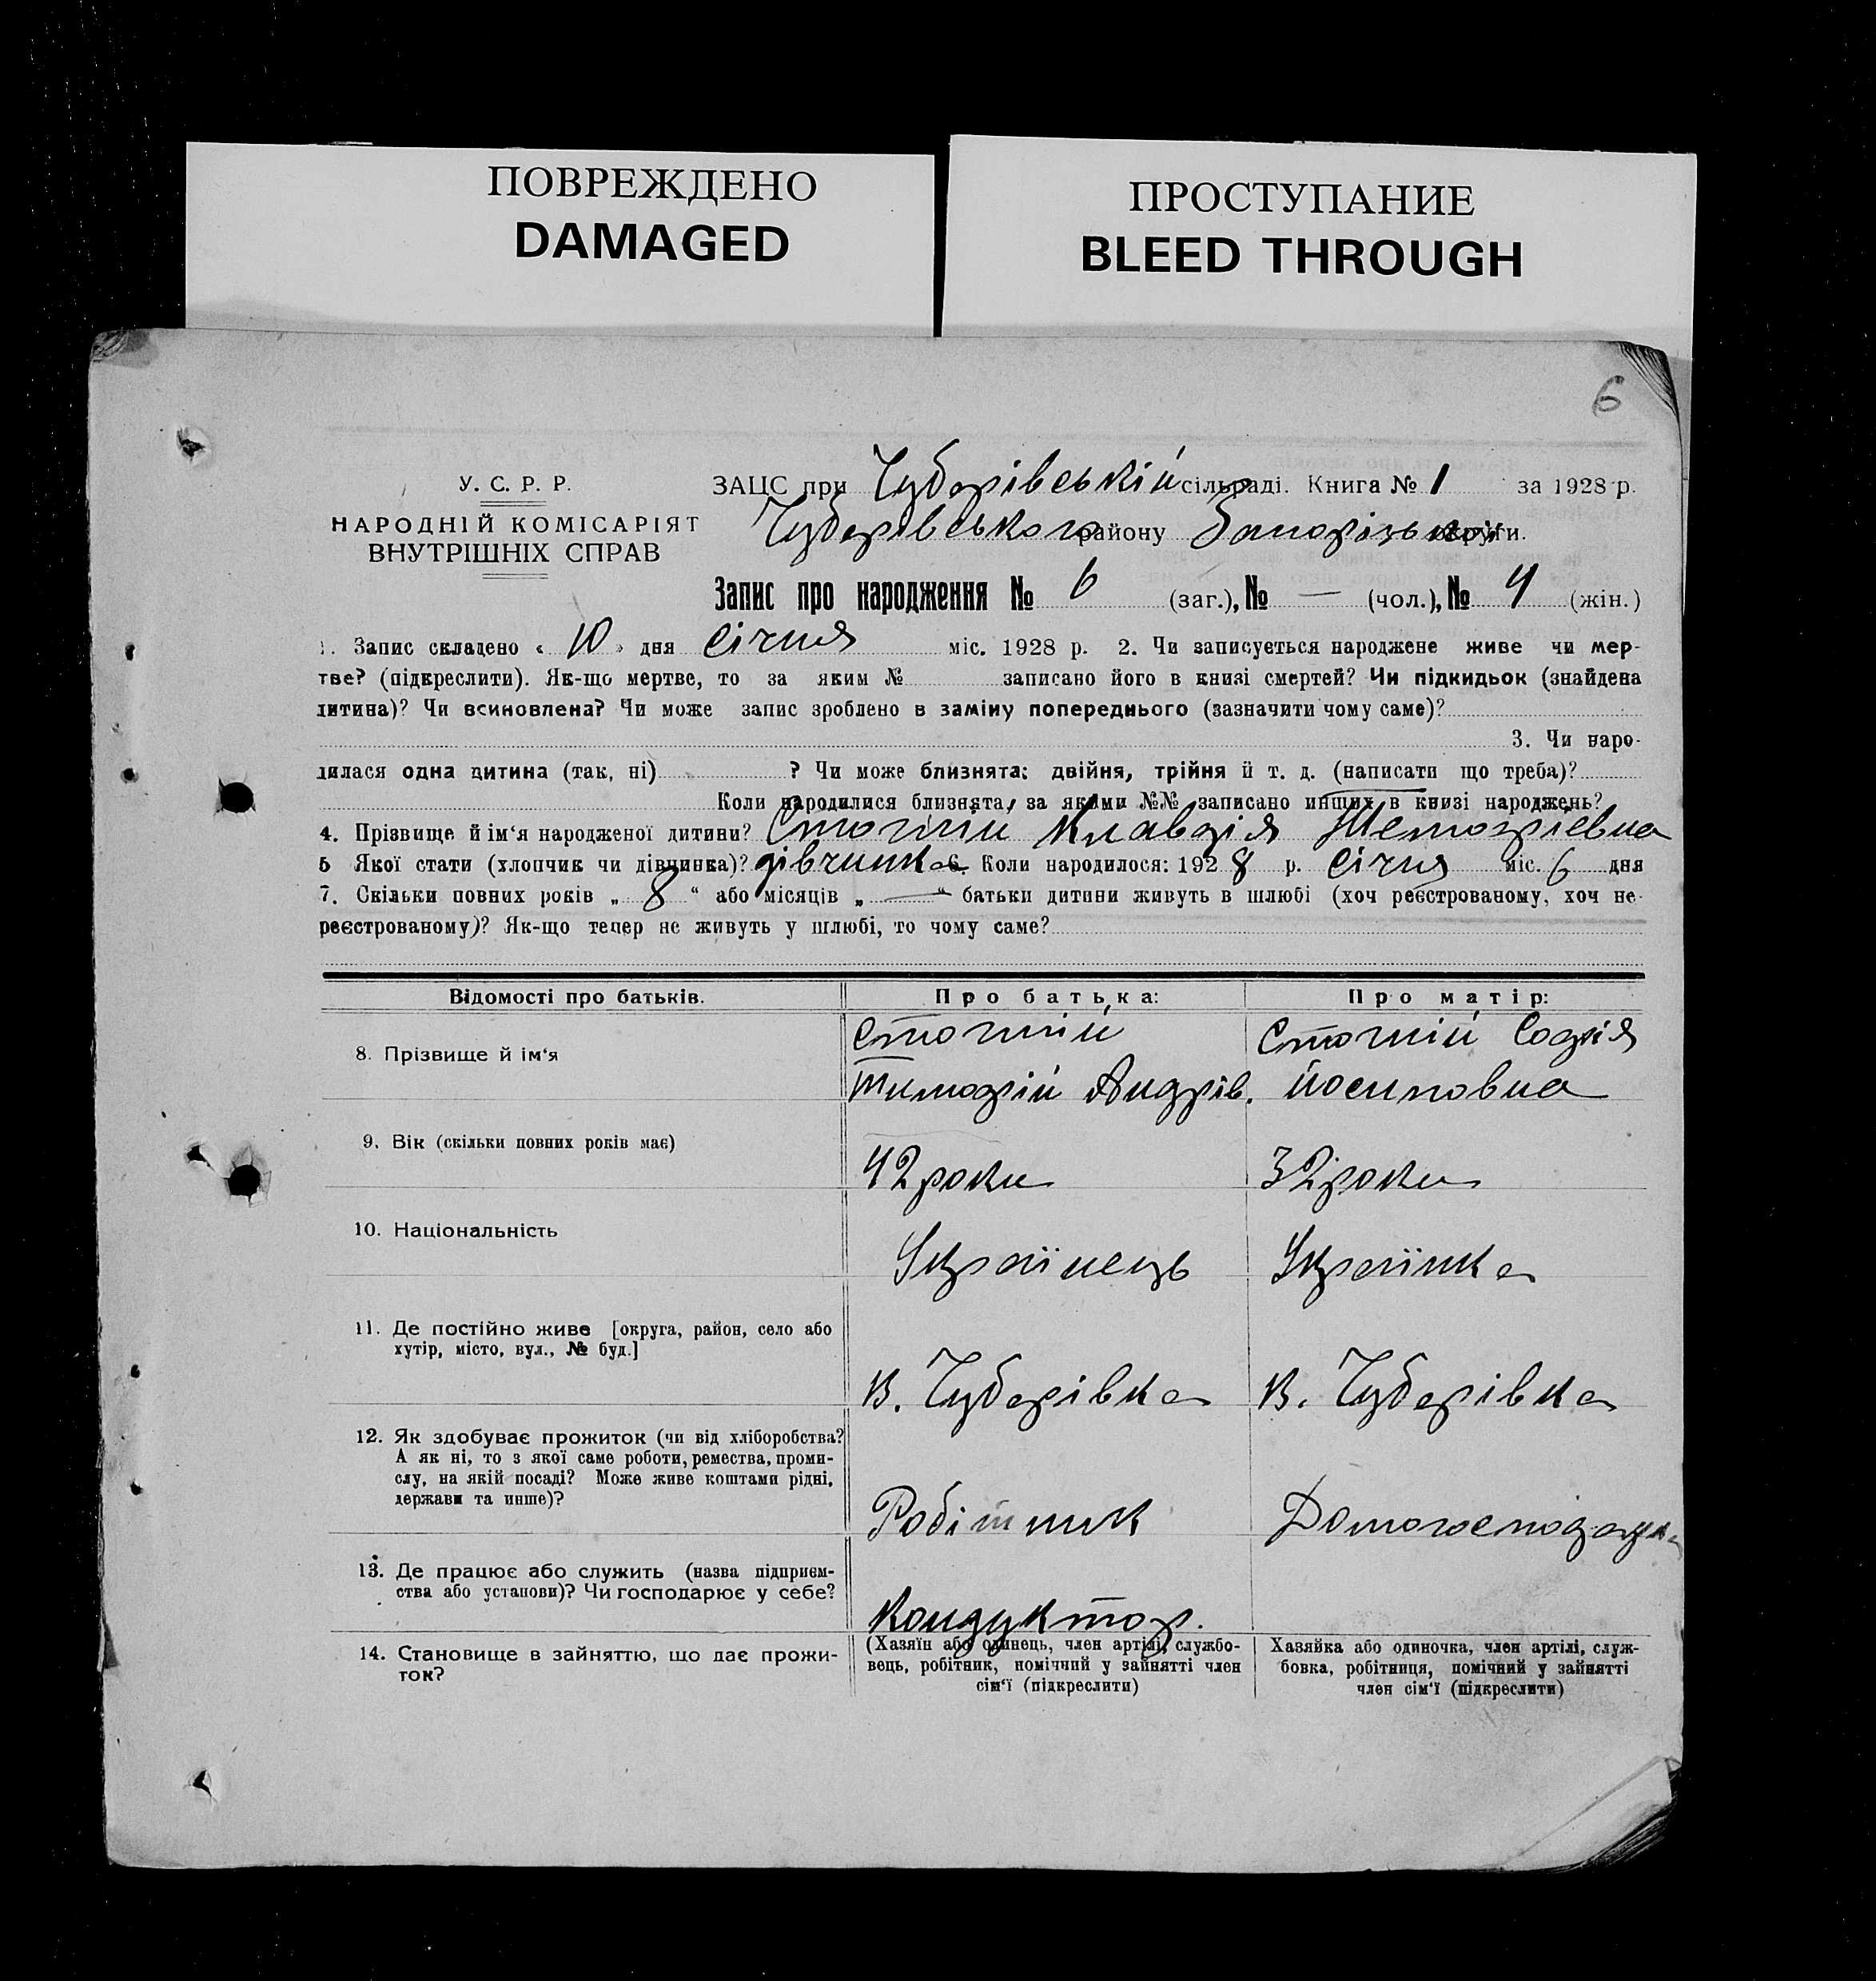 ПОВРЕЖДЕНО
DAMAGED
ПРОСТУПАНИЕ
BLEED THROUGH
6
У. С. Р. Р.
НАРОДНІЙ КОМІСАРІЯТ
ВНУТРІШНІХ СПРАВ
ЗАЦС при Чубарівській сільраді. Книга № 1 за 1928 р.
Чубарівського району Запорізької округи.
Запис про народження № 6 (заг.), № — (чол.), № 4 (жін.)
1. Запис складено « 10 » дня січня міс. 1928 р. 2. Чи записується народжене живе чи мер-
тве? (підкреслити). Як-що мертве, то за яким № записано його в книзі смертей? Чи підкидьок (знайдена
дитина)? Чи всиновлена? Чи може запис зроблено в заміну попереднього (зазначити чому саме)?
3. Чи наро-
дилася одна дитина (так, ні) ? Чи може близнята: двійня, трійня й т. д. (написати що треба)?
Коли народилися близнята, за якими №№ записано инших в книзі народжень?
4. Прізвище й ім‘я народженої дитини? Стогній Клавдія
5 Якої стати (хлопчик чи дівчинка)? дівчинка 6. Коли народилося: 1928 р. січня міс. 6 дня
7. Скільки повних років „ 8 “ або місяців „ — “ батьки дитини живуть в шлюбі (хоч реєстрованому, хоч не-
реєстрованому)? Як-що тепер не живуть у шлюбі, то чому саме?
Відомості про батьків. Про батька: Про матір:
8. Прізвище й ім‘я
Стогній Стогній Софія
Тимофій Андрів. Йосиповна
9. Вік (скільки повних років має)
42 роки 32 роки
10. Національність
Українець Українка
11. Де постійно живе [округа, район, село або
хутір, місто, вул., № буд.]
В. Чубарівка В. Чубарівка
12. Як здобуває прожиток (чи від хліборобства?
А як ні, то з якої саме роботи, ремества, проми-
слу, на якій посаді? Може живе коштами рідні,
держави та инше)?
Робітник
13. Де працює або служить (назва підприєм-
ства або установи)? Чи господарює у себе?
Кондуктор.
14. Становище в зайняттю, що дає прожи-
ток?
(Хазяїн або одинець, член артілі, службо-
вець, робітник, помічний у зайнятті член
сім‘ї (підкреслити)
Хазяйка або одиночка, член артілі, служ-
бовка, робітниця, помічний у зайнятті
член сім‘ї (підкреслити)